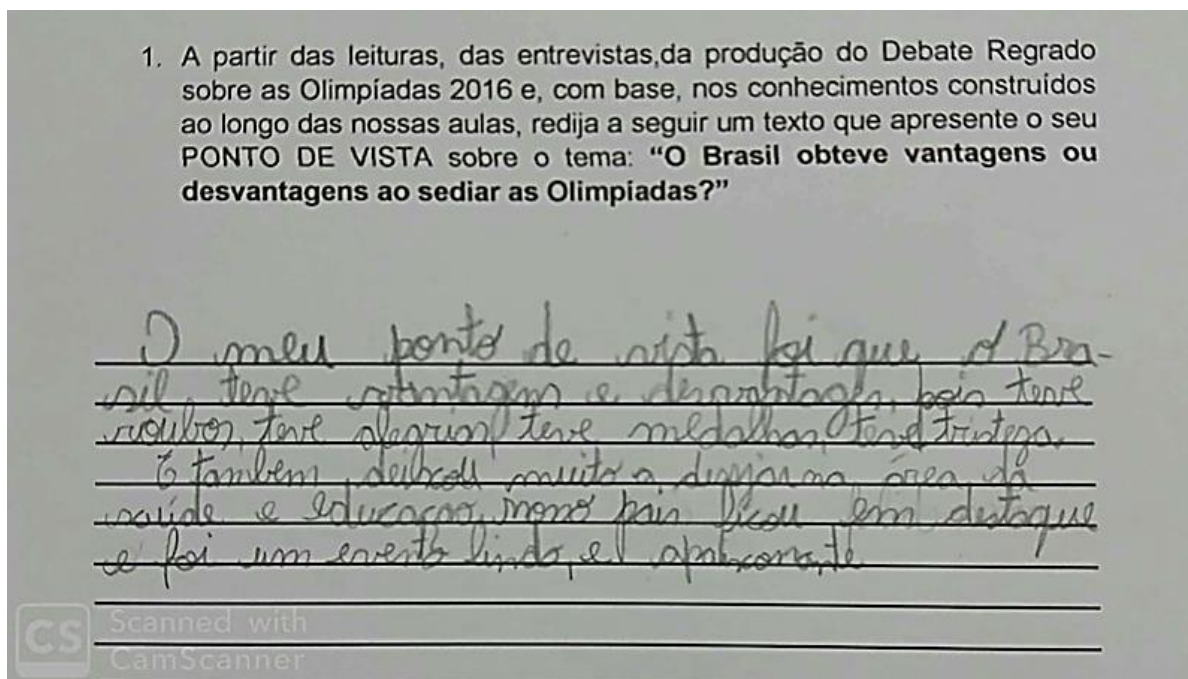 1. A partir das leituras, das entrevistas,da produção do Debate Regrado
sobre as Olimpíadas 2016 e, com base, nos conhecimentos construídos
ao longo das nossas aulas, redija a seguir um texto que apresente o seu
PONTO DE VISTA sobre o tema: “O Brasil obteve vantagens ou
desvantagens ao sediar as Olimpíadas?”
O meu ponto de vista foi que o Bra-
sil, teve vantagem e desvantagen, pois teve
roubos, teve alegrias, teve medalhas, teve tristeza.
E também deixou muito a desejar na área da
saúde e educação, pais ficou em destaque
e foi um evento lindo, e
CS Scanned with
CamScanner